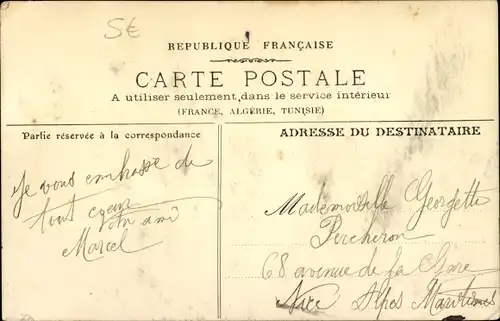 5€
REPUBLIQUE FRANÇAISE
CARTE POSTALE
A utiliser seulement dans le service intérieur
(FRANCE, ALGÉRIE, TUNISIE)
Partie réservée à la correspondance
ADRESSE DU DESTINATAIRE
Je vous embrasse de
tout cœur
votre ami
Marcel
Mademoiselle Georgette
Percheron
68 avenue de la Gare
Nice Alpes Maritimes